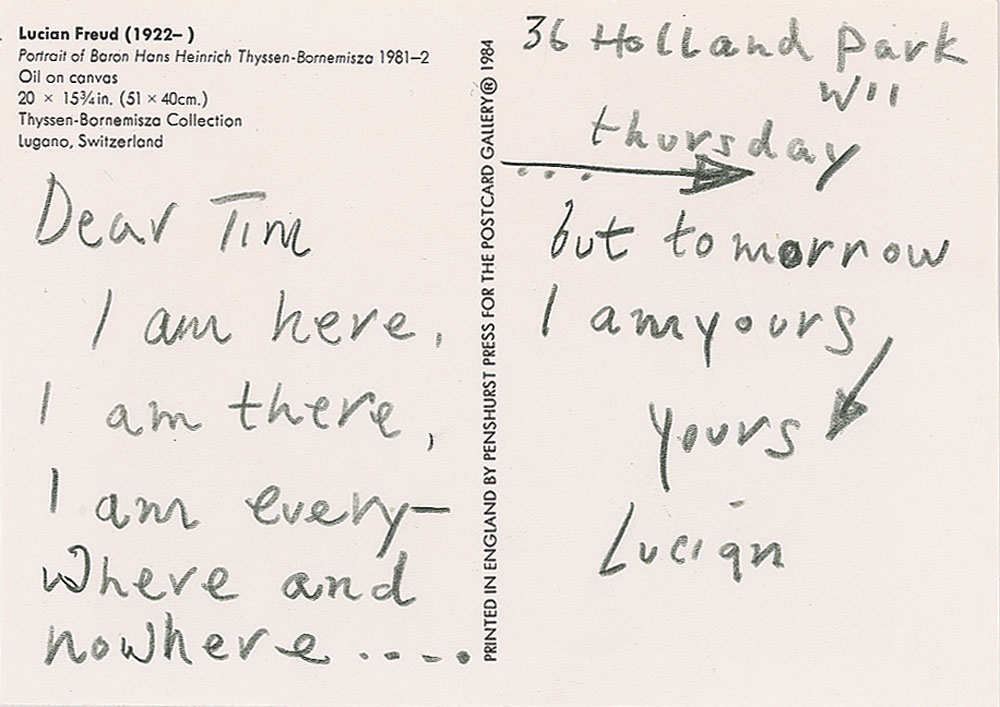 Lucian Freud (1922– )
Portrait of Baron Hans Heinrich Thyssen-Bornemisza 1981–2
Oil on canvas
20 × 15¾in. (51 × 40cm.)
Thyssen-Bornemisza Collection
Lugano, Switzerland
Dear Tim
I am here,
I am there,
I am every–
where and
nowhere .....
PRINTED IN ENGLAND BY PENSHURST PRESS FOR THE POSTCARD GALLERY® 1984
36 Holland Park
W11
thursday
...
but tomorrow
I am yours
yours
Lucian